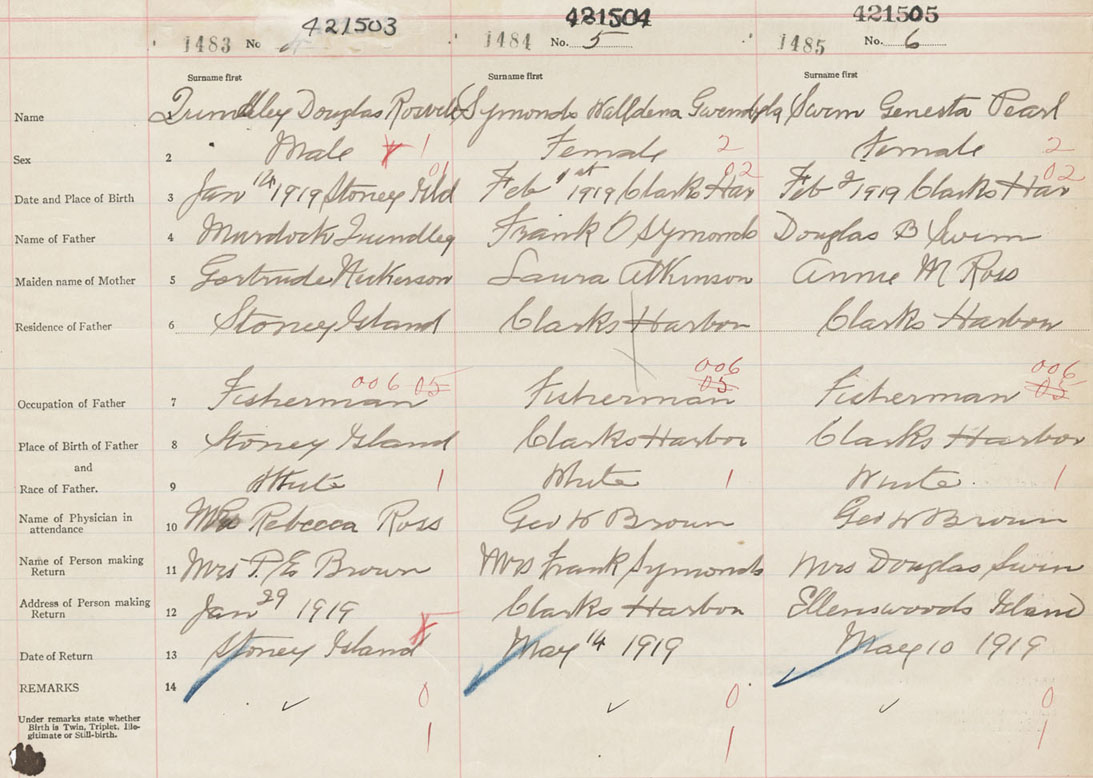 421503 421504 421505
1483 No 4 1484 No. 5 1485 No. 6
Surname first Surname first Surname first
Name Douglas Symonds Walldena Swim Genesta Pearl
Sex 2 Male 1 Female 2 Female 2
01 02 02
Date and Place of Birth 3 Jan 14 1919 Stoney Ild Feb 1st 1919 Clarks Har Feb 2 1919 Clarks Har
Name of Father 4 Murdock Frank O Symonds Douglas B Swim
Maiden name of Mother 5 Gertrude Nickerson Laura Atkinson Annie M Ross
Residence of Father 6 Stoney Island Clarks Harbor Clarks Harbor
006 05 006 05 006 05
Occupation of Father 7 Fisherman Fisherman Fisherman
Place of Birth of Father 8 Stoney Island Clarks Harbor Clarks Harbor
and
Race of Father. 9 White 1 White 1 White 1
Name of Physician in
attendance 10 Mrs Rebecca Ross Geo W Brown Geo W Brown
Name of Person making
Return 11 Mrs P. E Brown Mrs Frank Symonds Mrs Douglas Swim
Address of Person making
Return 12 Jan 29 1919 Clarks Harbor Ellenswoods Island
Date of Return 13 Stoney Island May 14 1919 May 10 1919
REMARKS 14 0 0 0
Under remarks state whether
Birth is Twin, Triplet, Ille-
gitimate or Still-birth. 1 1 1